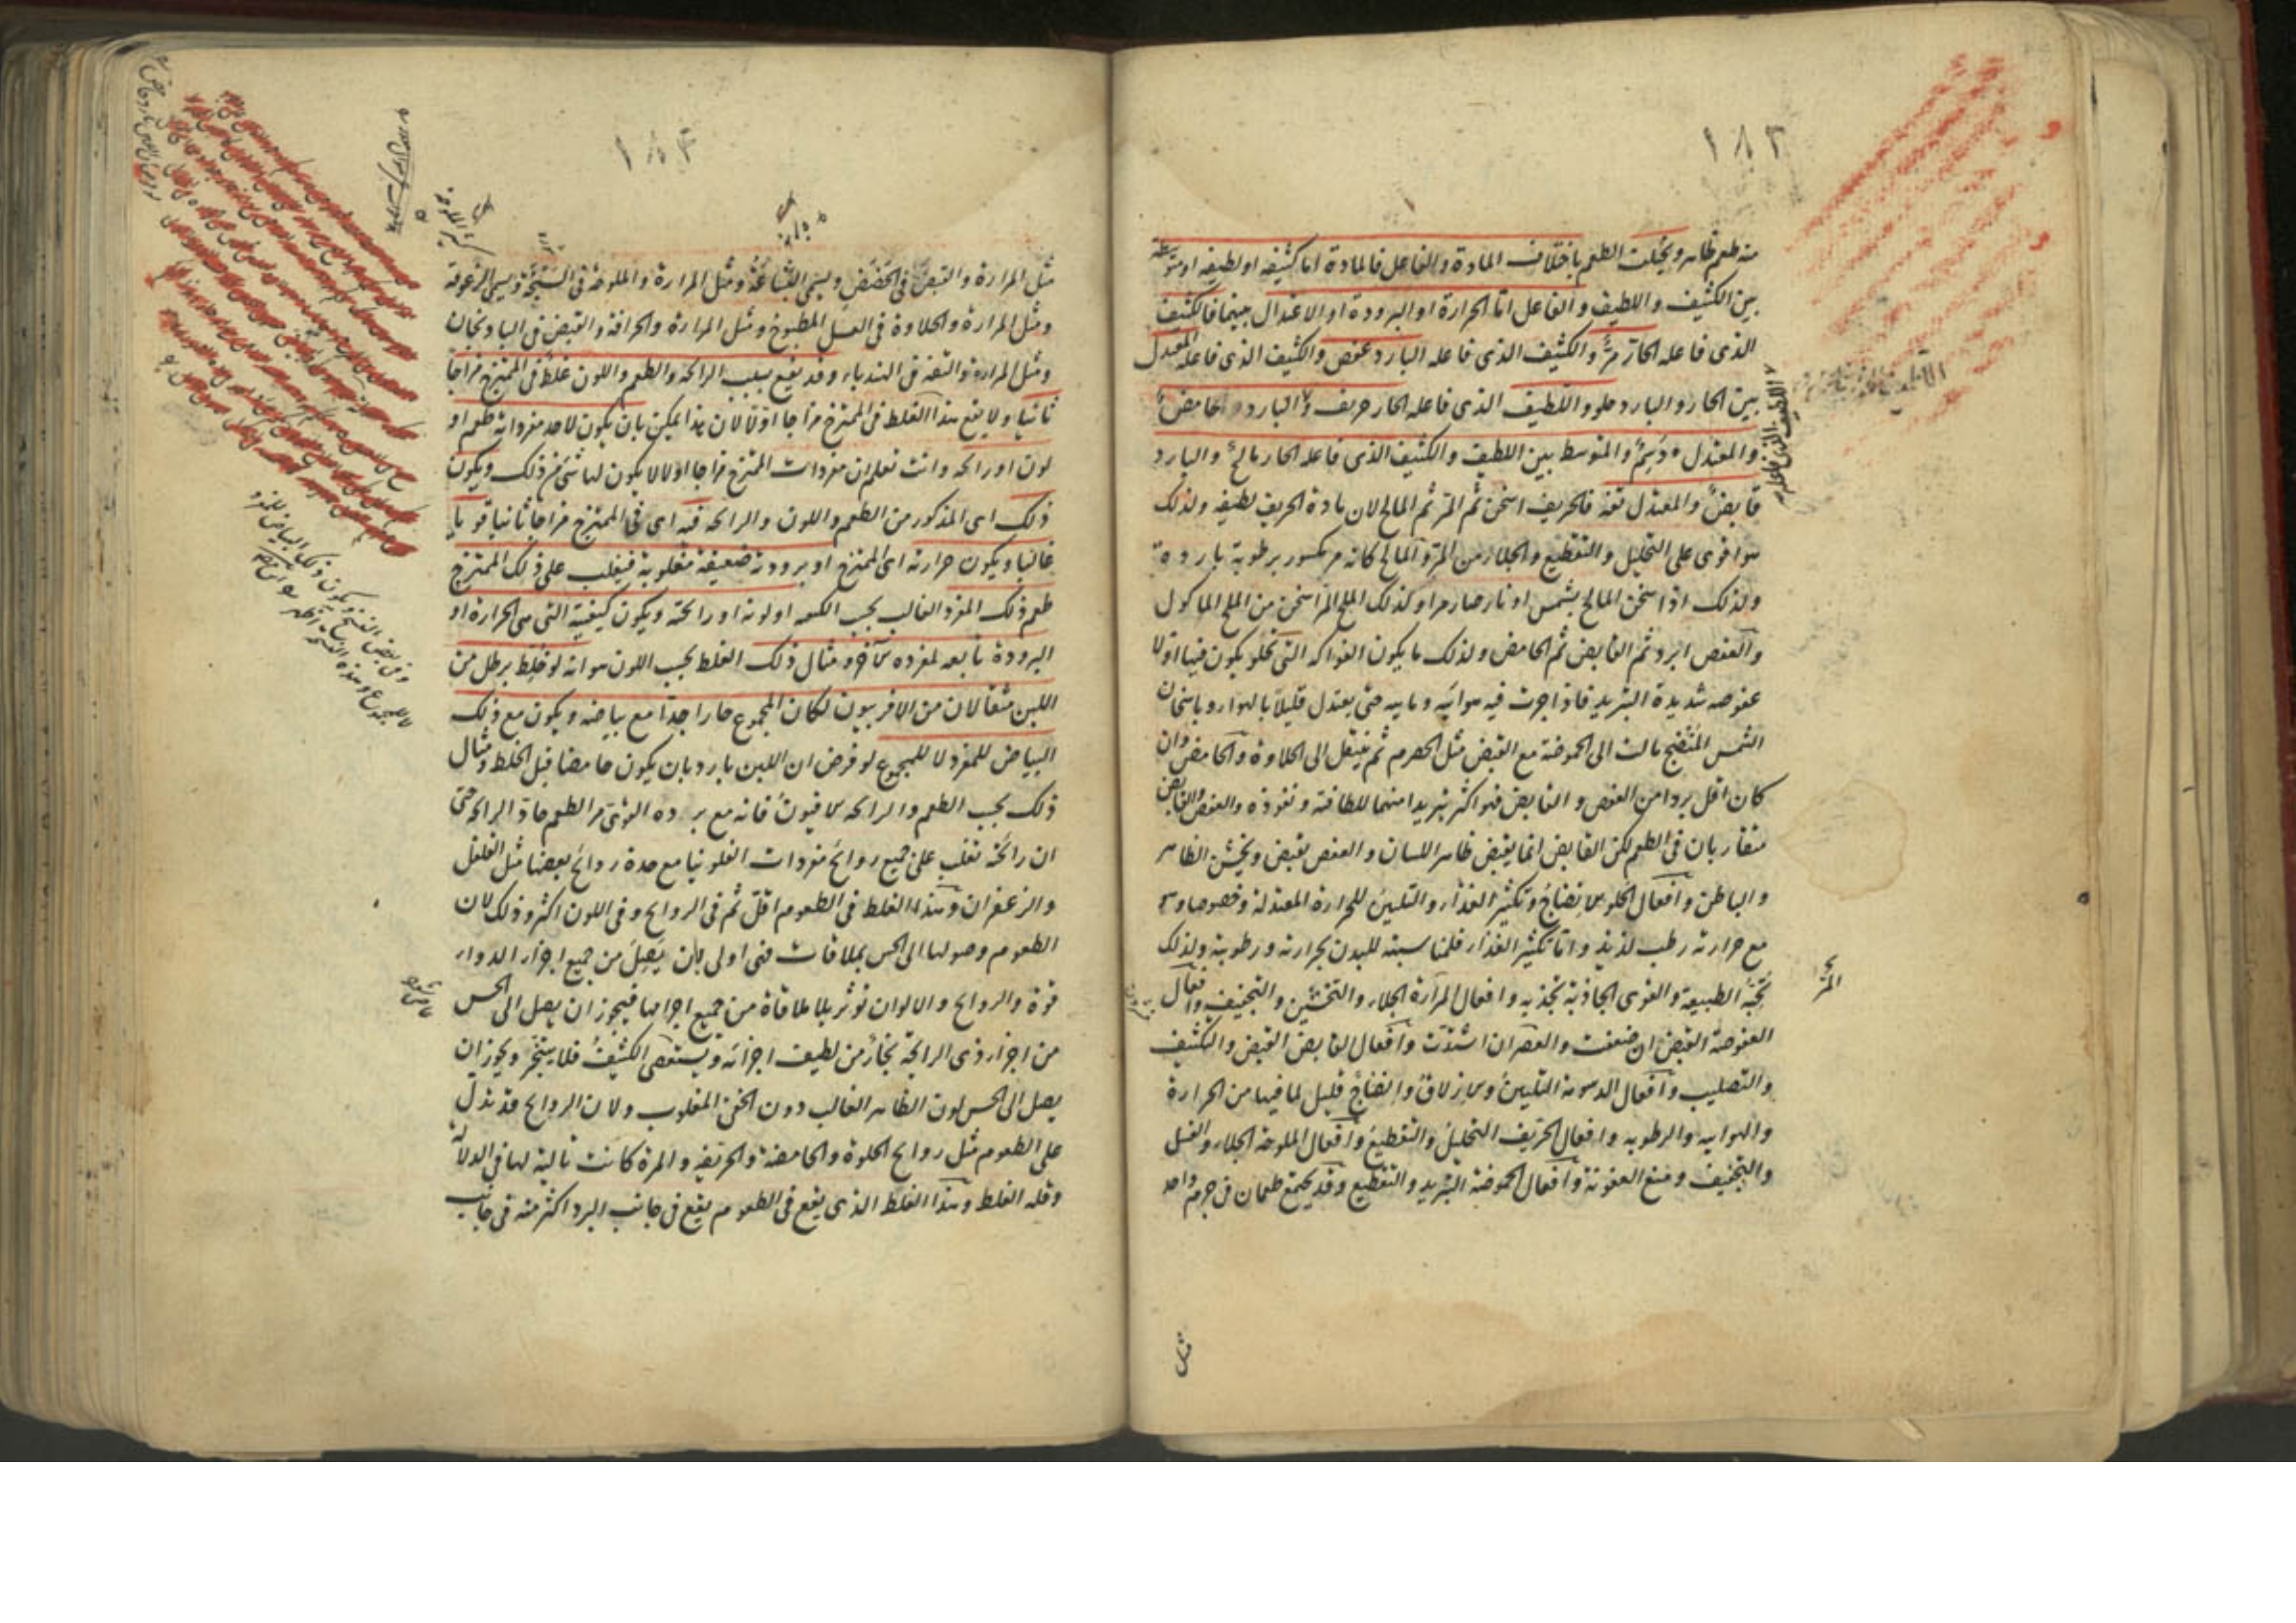 ١٨٣
منه طعم ظاهر ويختلف الطعم باختلاف المادة والفاعل فالمادة اما كثيفة او لطيفة او متوسطة
بين الكثيف واللطيف والفاعل اما الحرارة او البرودة او الاعتدال بينهما فالكثيف
الذى فاعله الحار مرّ والكثيف الذى فاعله البارد عفص والكثيف الذى فاعله المعتدل
بين الحار والبارد حلو واللطيف الذى فاعله الحار حريف والبارد حامض
والمعتدل دسم والمتوسط بين اللطيف والكثيف الذى فاعله الحار مالح والبارد
قابض والمعتدل تفه فالحريف اسخن ثم المر ثم المالح لان مادة الحريف لطيفة ولذلك
هو اقوى على التحليل والتقطيع والجلاء من المر والمالح كانه مر مكسور برطوبة باردة
ولذلك اذا سخن المالح بشمس او نار صار مرا وكذلك الملح المر اسخن من الملح الماكول
والعفص ابرد ثم القابض ثم الحامض ولذلك ما يكون الفواكه التى تحلو يكون فيها اولا
عفوصه شديدة التبريد فاذا جرت فيه هوائيه ومائيه حتى يعتدل قليلا بالهواء وباسخان
الشمس المنضج مالت الى الحموضة مع القبض مثل الحصرم ثم ينتقل الى الحلاوة والحامض وان
كان اقل بردا من العفص والقابض فهو اكثر تبريدا منهما للطافته ونفوذه والعفص والقابض
متقاربان فى الطعم لكن القابض انما يقبض ظاهر اللسان والعفص يقبض ويخشن الظاهر
والباطن وافعال الحلو الانضاج وتكثير الغذاء والتليين للحرارة المعتدلة وخصوصا وهى
مع حرارته رطب لذيذ واما تكثير الغذاء فلمناسبته للبدن بحرارته ورطوبته ولذلك
تحبه الطبيعة والقوى الجاذبة تجذبه وافعال المرارة الجلاء والتخشين والتجفيف وافعال
العفوصة القبض ان ضعفت والعصر ان اشتدت وافعال القابض القبض والتكثيف
والتصليب وافعال الدسومة التليين والازلاق وانضاج قليل لما فيها من الحرارة
والهوائيه والرطوبه وافعال الحريف التحليل والتقطيع وافعال الملوحة الجلاء والغسل
والتجفيف ومنع العفونة وافعال الحموضة التبريد والتقطيع وقد يجتمع طعمان فى جرم واحد
مثل
اللطيف الذى فاعله
المر
١٨٤
مثل المرارة والقبض فى الحضض ويسمى البشاعة ومثل المرارة والملوحة فى السبخة ويسمى الزعوقة
ومثل المرارة والحلاوة فى العسل المطبوخ ومثل المرارة والحرافة والقبض فى الباذنجان
ومثل المرارة والتفه فى الهندباء وقد يقع بسبب الرائحة والطعم واللون غلط فى الممتزج مزاجا
ثانيا ولا يقع هذا الغلط فى الممتزج مزاجا اولا لان هذا يمكن بان يكون لاحد مفرداته طعم او
لون او رائحة وانت تعلم ان مفردات الممتزج مزاجا اولا لا يكون لها شئ من ذلك ويكون
ذلك اى المذكور من الطعم واللون والرائحة فيه اى فى الممتزج مزاجا ثانيا قويا
غالبا ويكون حرارته اى الممتزج او برودته ضعيفة مغلوبة فيغلب على ذلك الممتزج
طعم ذلك المفرد الغالب بحسب الكمية او لونه او رائحته ويكون كيفيته التى هى الحرارة او
البرودة تابعة لمفرده الآخر ومثال ذلك الغلط بحسب اللون هو انه لو خلط برطل من
اللبن مثقالان من الافربيون لكان المجموع حارا جدا مع بياضه ويكون مع ذلك
البياض للمفرد لا للمجموع لو فرض ان اللبن بارد بان يكون حامضا قبل الخلط ومثال
ذلك بحسب الطعم والرائحة الافيون فانه مع برده القوى مر الطعم حاد الرائحة حتى
ان رائحته تغلب على جميع روائح مفردات الفلونيا مع حدة روائح بعضها مثل الفلفل
والزعفران وهذا الغلط فى الطعوم اقل ثم فى الروائح وفى اللون اكثر وذلك لان
الطعوم وصولها الى الحس بملاقات فهى اولى بان يصل من جميع اجزاء الدواء
قوة والروائح والالوان تؤثر بلا ملاقاة من جميع اجرامها فيجوز ان يصل الى الحس
من اجزاء ذى الرائحة بخار من لطيف اجزائه ويستعصى الكثيف فلا يتبخر ويجوز ان
يصل الى الحس لون الظاهر الغالب دون الخفى المغلوب ولان الروائح قد تدل
على الطعوم مثل روائح الحلوة والحامضة والحريفة والمرة كانت تالية لها فى الدلالة
وقلة الغلط وهذا الغلط الذى يقع فى الطعوم يقع فى جانب البرد اكثر منه فى جانب
وفى بعض النسخ ويكون ذلك البياض للمفرد